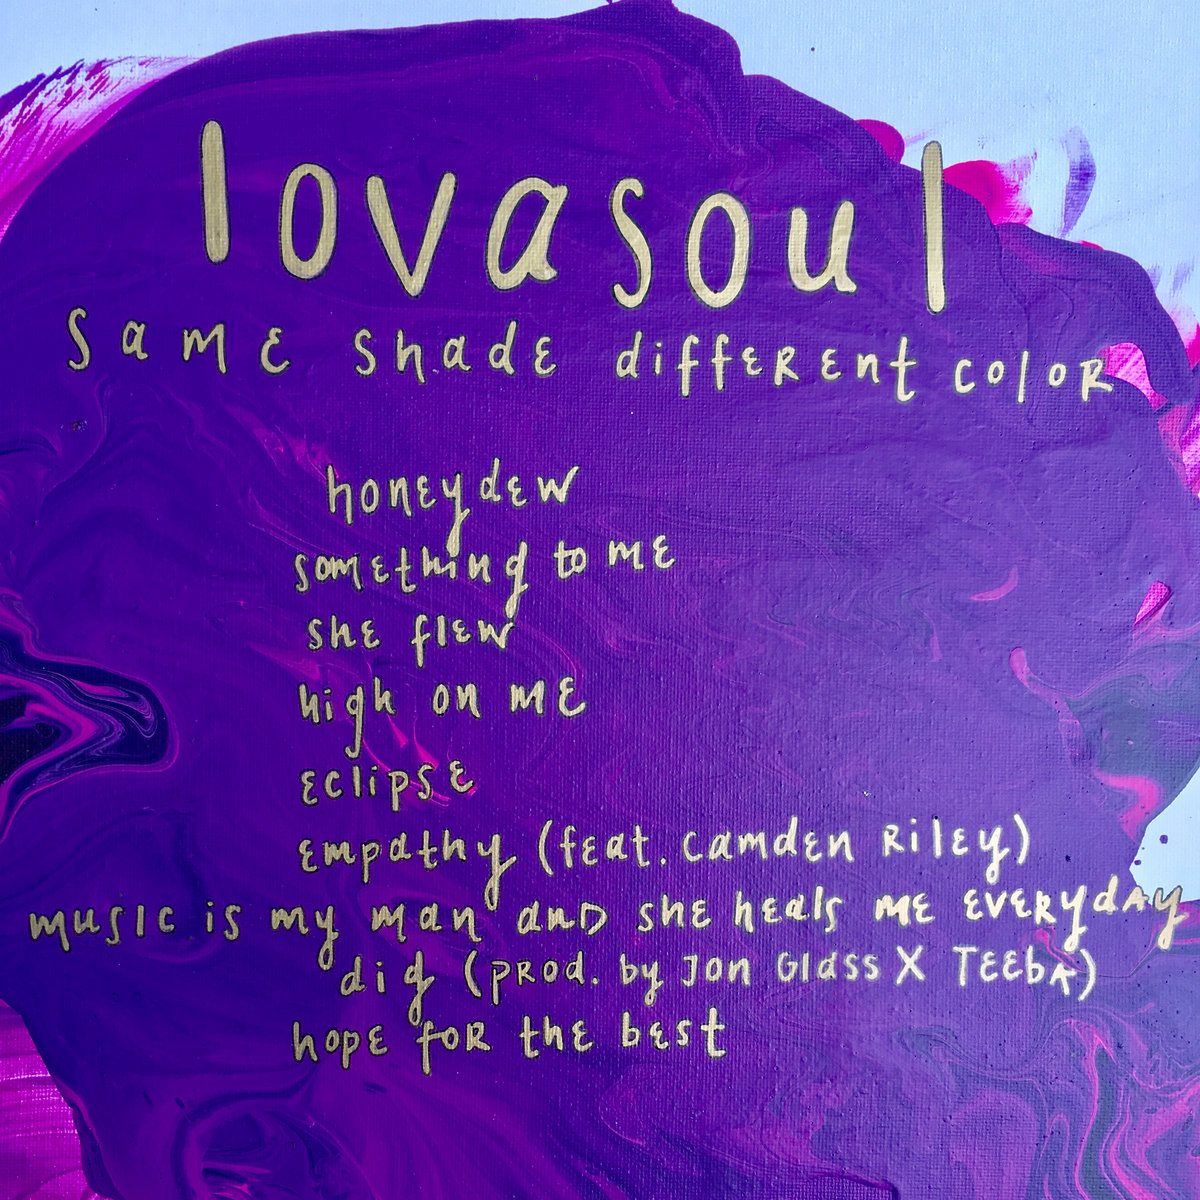 lovasoul
same shade different color
honeydew
something to me
she flew
high on me
eclipse
empathy (feat. camden Riley)
music is my man and she heals me everyday
dig (prod. by Jon Glass X Teeba)
hope for the best